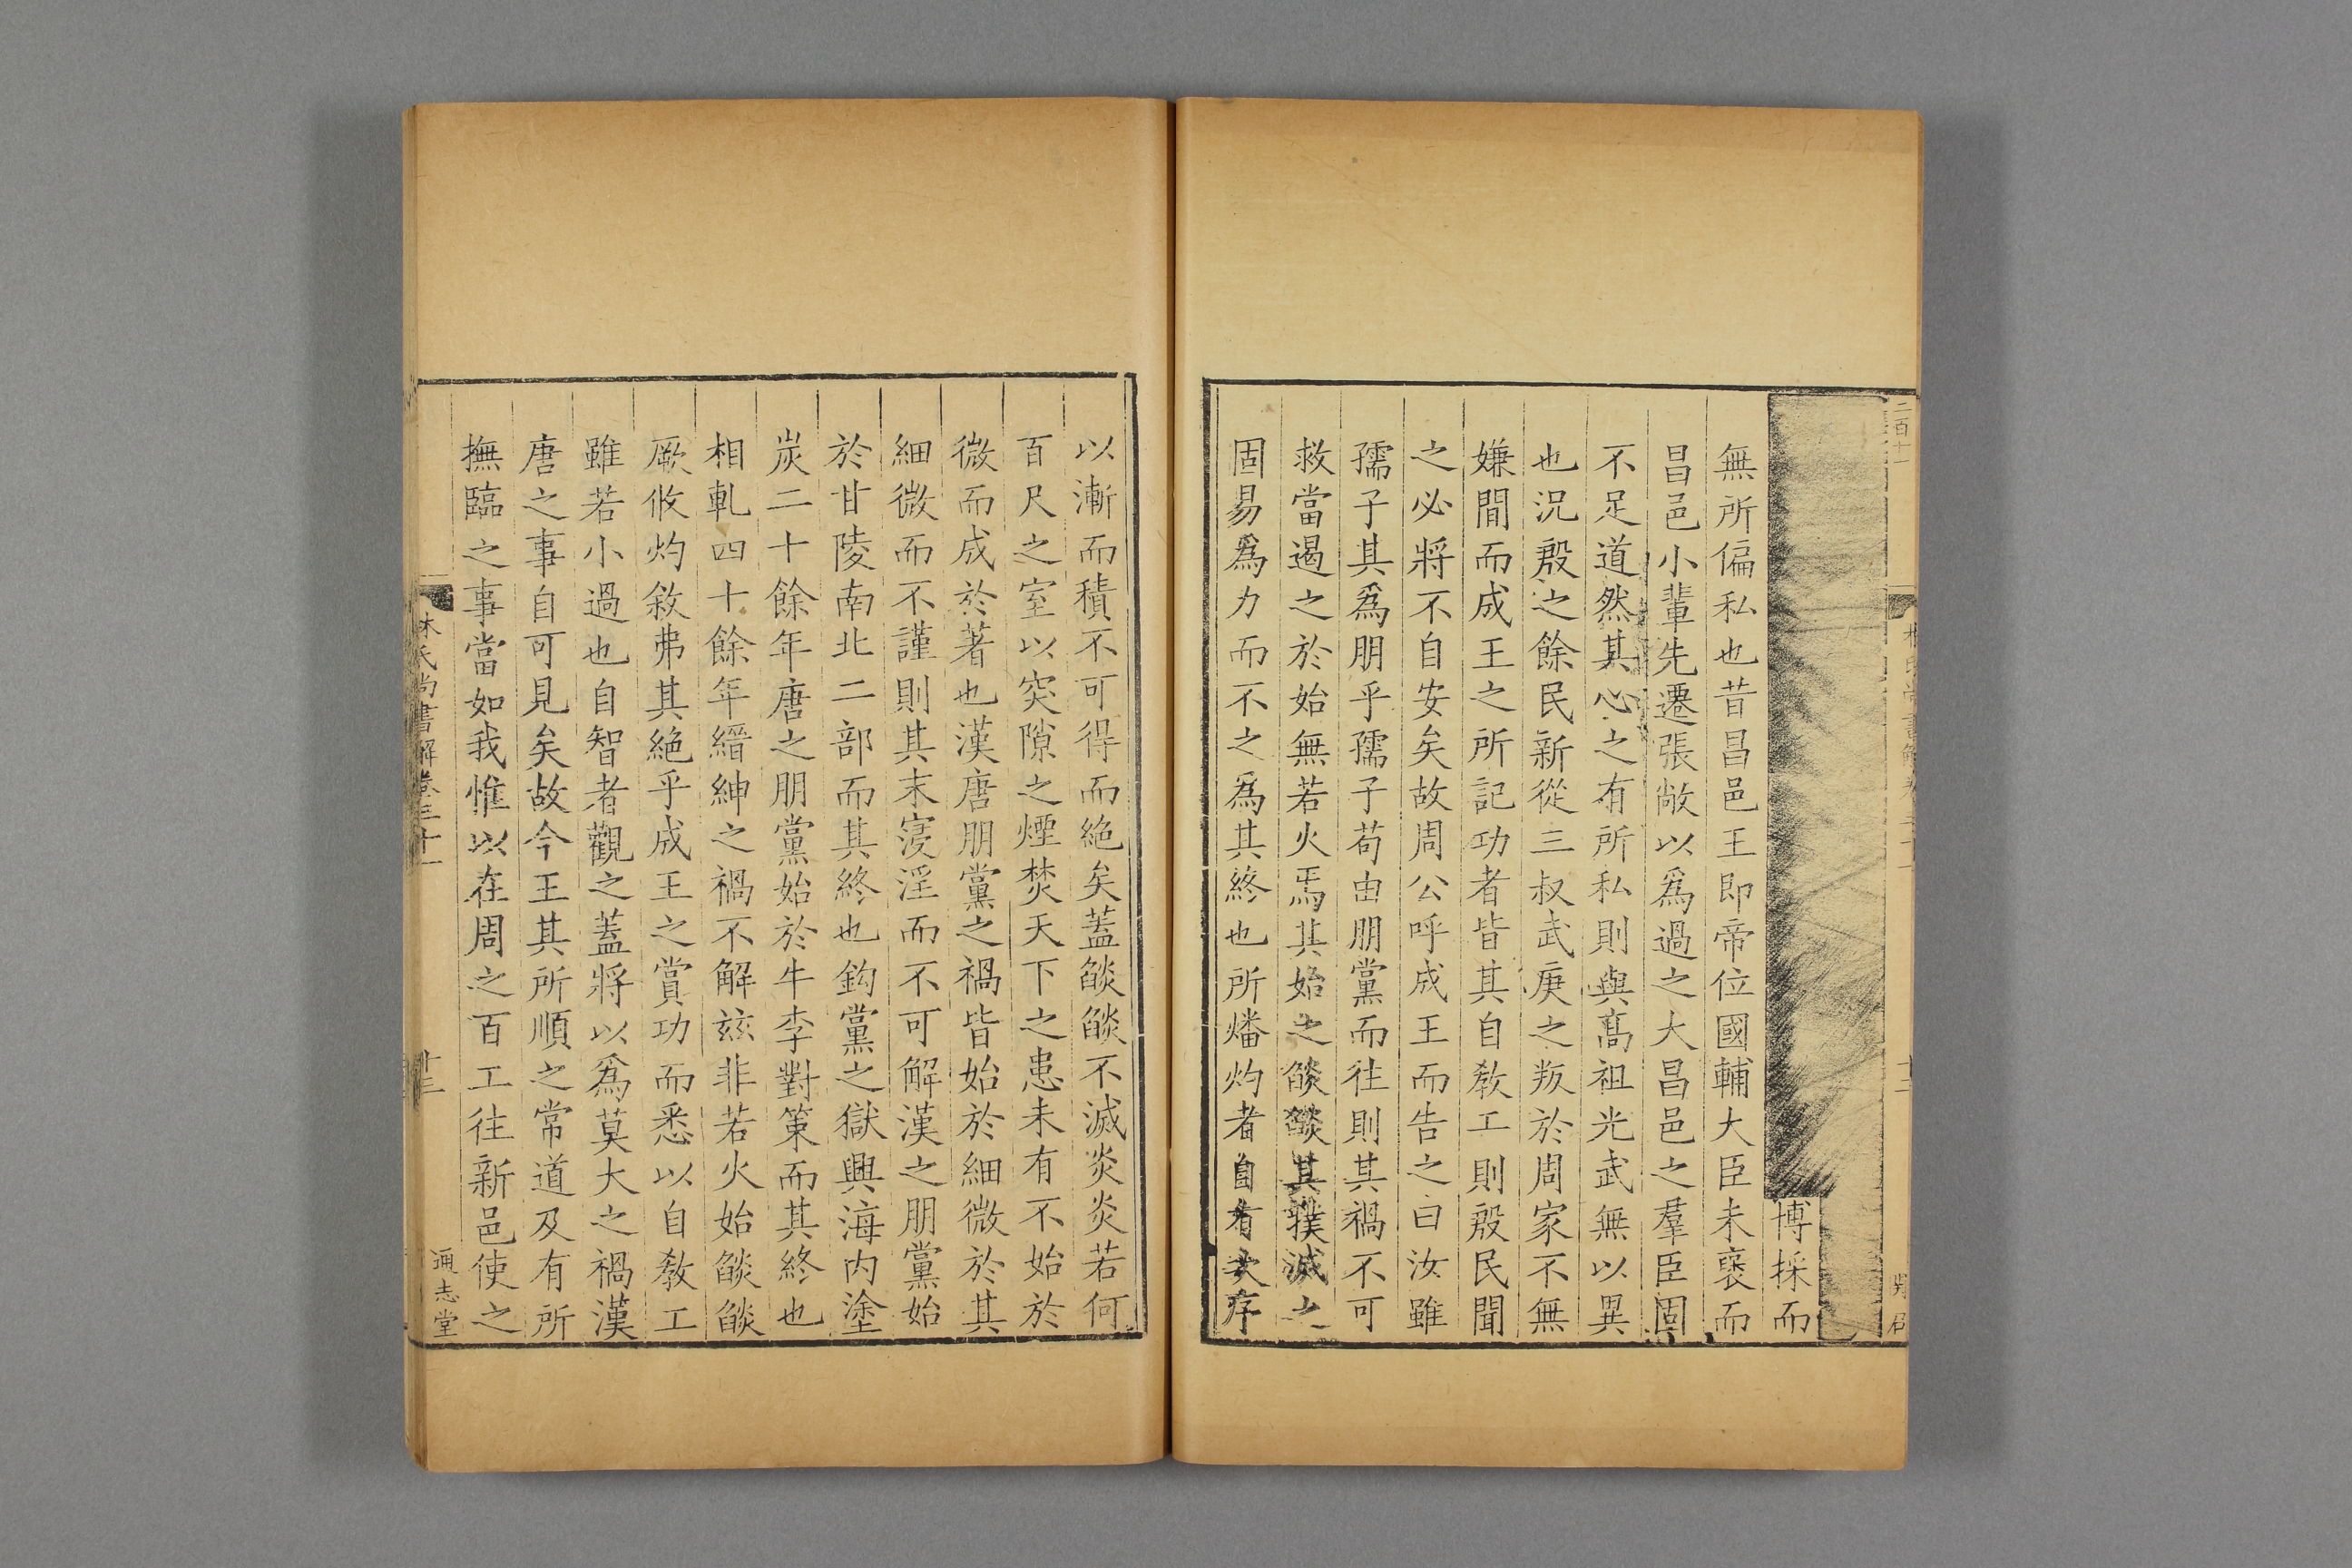 博採而
無所偏私也昔昌邑王即帝位國輔大臣未褒而
昌邑小輩先遷張敞以爲過之大昌邑之羣臣固
不足道然其心之有所私則與高祖光武無以異
也況殷之餘民新從三叔武庚之叛於周家不無
嫌間而成王之所記功者皆其自敎工則殷民聞
之必將不自安矣故周公呼成王而告之曰汝雖
孺子其爲朋乎孺子苟由朋黨而往則其禍不可
救當遏之於始無若火焉其始之燄燄其撲滅之
固易爲力而不之爲其終也所燔灼者自有次序
以漸而積不可得而絶矣蓋燄燄不滅炎炎若何
百尺之室以突隙之煙焚天下之患未有不始於
微而成於著也漢唐朋黨之禍皆始於細微於其
細微而不謹則其末寖淫而不可解漢之朋黨始
於甘陵南北二部而其終也鈎黨之獄興海内塗
炭二十餘年唐之朋黨始於牛李對策而其終也
相軋四十餘年縉紳之禍不解玆非若火始燄燄
厥攸灼敘弗其絶乎成王之賞功而悉以自敎工
雖若小過也自智者觀之蓋將以爲莫大之禍漢
唐之事自可見矣故今王其所順之常道及有所
撫臨之事當如我惟以在周之百工往新邑使之
林氏尚書解卷三十一
十三
通志堂